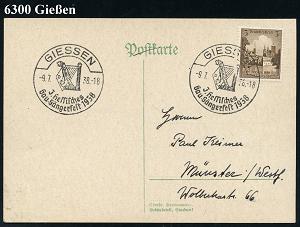 6300 Gießen
Postkarte
GIESSEN
-9.7. 38.-18
3. Hessisches
Gau-Sängerfest 1938
GIESSEN
-9.7. 38.-18
3. Hessisches
Gau-Sängerfest 1938
Herrn
Paul Keimer
Münster / Westf.
Wolbeckerstr. 66